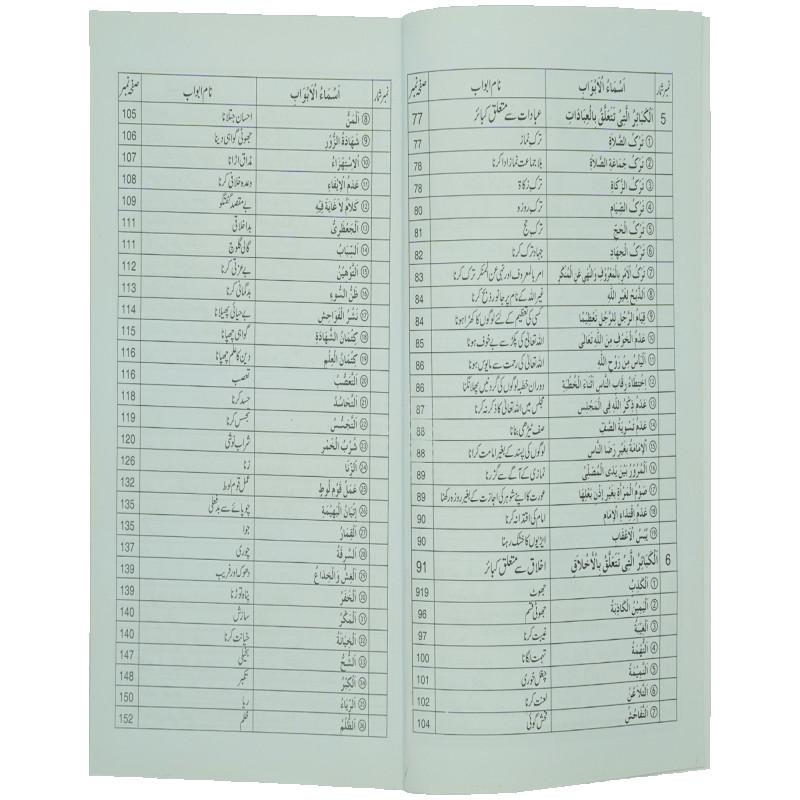 نمبر شمار اَسْمَاءُ الْاَبْوَابِ نام ابواب صفحہ نمبر
5 اَلْكَبَائِرُ الَّتِىْ تَتَعَلَّقُ بِالْعِبَادَاتِ عبادات سے متعلق کبائر 77
① تَرْكُ الصَّلَاةِ ترک نماز 77
② تَرْكُ جَمَاعَةِ الصَّلَاةِ بلا جماعت نماز ادا کرنا 78
③ تَرْكُ الزَّكَاةِ ترک زکاۃ 78
④ تَرْكُ الصِّيَامِ ترک روزہ 80
⑤ تَرْكُ الْحَجِّ ترک حج 81
⑥ تَرْكُ الْجِهَادِ جہاد ترک کرنا 82
⑦ تَرْكُ الْاَمْرِ بِالْمَعْرُوْفِ وَالنَّهْىِ عَنِ الْمُنْكَرِ امر بالمعروف اور نہی عن المنکر ترک کرنا 83
⑧ اَلذَّبْحُ لِغَيْرِ اللّٰهِ غیر اللہ کے نام پر جانور ذبح کرنا 84
⑨ قِيَامُ الرَّجُلِ لِلرَّجُلِ تَعْظِيْمًا کسی کی تعظیم کے لئے لوگوں کا کھڑا ہونا 84
⑩ عَدَمُ الْخَوْفِ مِنَ اللّٰهِ تَعَالٰى اللہ تعالیٰ کی پکڑ سے بے خوف ہونا 85
⑪ اَلْيَاْسُ مِنْ رَوْحِ اللّٰهِ اللہ تعالیٰ کی رحمت سے مایوس ہونا 86
⑫ اِخْتِطَاءُ رِقَابِ النَّاسِ اَثْنَاءَ الْخُطْبَةِ دوران خطبہ لوگوں کی گردنیں پھلانگنا 86
⑬ عَدَمُ ذِكْرِ اللّٰهِ فِى الْمَجْلِسِ مجلس میں اللہ تعالیٰ کا ذکر نہ کرنا 87
⑭ عَدَمُ تَسْوِيَةِ الصَّفِّ صف ٹیڑھی بنانا 88
⑮ اَلْاِمَامَةُ بِغَيْرِ رِضَا النَّاسِ لوگوں کی پسند کے بغیر امامت کرانا 88
⑯ اَلْمُرُوْرُ بَيْنَ يَدَىِ الْمُصَلِّىْ نمازی کے آگے سے گزرنا 89
⑰ صَوْمُ الْمَرْاَةِ بِغَيْرِ اِذْنِ بَعْلِهَا عورت کا اپنے شوہر کی اجازت کے بغیر روزہ رکھنا 89
⑱ عَدَمُ اِقْتِدَاءِ الْاِمَامِ امام کی اقتدا نہ کرنا 90
⑲ يُبْسُ الْاَعْقَابِ ایڑیوں کا خشک رہنا 90
6 اَلْكَبَائِرُ الَّتِىْ تَتَعَلَّقُ بِالْاَخْلَاقِ اخلاق سے متعلق کبائر 91
① اَلْكَذِبُ جھوٹ 919
② اَلْيَمِيْنُ الْكَاذِبَةُ جھوٹی قسم 96
③ اَلْغِيْبَةُ غیبت کرنا 97
④ اَلتُّهْمَةُ تہمت لگانا 100
⑤ اَلنَّمِيْمَةُ چغل خوری 101
⑥ اَلتَّلَاعُنُ لعنت کرنا 102
⑦ اَلتَّفَاحُشُ فحش گوئی 104
نمبر شمار اَسْمَاءُ الْاَبْوَابِ نام ابواب صفحہ نمبر
⑧ اَلْمَنُّ احسان جتلانا 105
⑨ شَهَادَةُ الزُّوْرِ جھوٹی گواہی دینا 106
⑩ اَلْاِسْتِهْزَاءُ مذاق اڑانا 107
⑪ عَدَمُ الْاِيْفَاءِ وعدہ خلافی کرنا 108
⑫ كَلَامٌ لَا غَايَةَ فِيْهِ بے مقصد گفتگو 109
⑬ اَلْجَعْظَرِىُّ بداخلاقی 111
⑭ اَلسِّبَابُ گالی گلوچ 111
⑮ اَلتَّوْهِيْنُ بے عزتی کرنا 112
⑯ ظَنُّ السُّوْءِ بدگمانی کرنا 113
⑰ نَشْرُ الْفَوَاحِشِ بے حیائی پھیلانا 114
⑱ كِتْمَانُ الشَّهَادَةِ گواہی چھپانا 115
⑲ كِتْمَانُ الْعِلْمِ دین کا علم چھپانا 116
⑳ اَلتَّعَصُّبُ تعصب 116
㉑ اَلتَّحَاسُدُ حسد کرنا 118
㉒ اَلتَّجَسُّسُ تجسس کرنا 119
㉓ شُرْبُ الْخَمْرِ شراب نوشی 120
㉔ اَلزِّنَا زنا 126
㉕ عَمَلُ قَوْمِ لُوْطٍ عمل قوم لوط 132
㉖ اِتْيَانُ الْبَهِيْمَةِ چوپائے سے بدفعلی 135
㉗ اَلْقِمَارُ جوا 135
㉘ اَلسَّرِقَةُ چوری 137
㉙ اَلْغِشُّ وَالْخِدَاعُ دھوکہ اور فریب 139
㉚ اَلْخَفْرُ پناہ توڑنا 139
㉛ اَلْمَكْرُ سازش 140
㉜ اَلْخِيَانَةُ خیانت کرنا 140
㉝ اَلشُّحُّ بخیلی 147
㉞ اَلْكِبْرُ تکبر 148
㉟ اَلرِّيَاءُ ریا 150
㊱ اَلظُّلْمُ ظلم 152